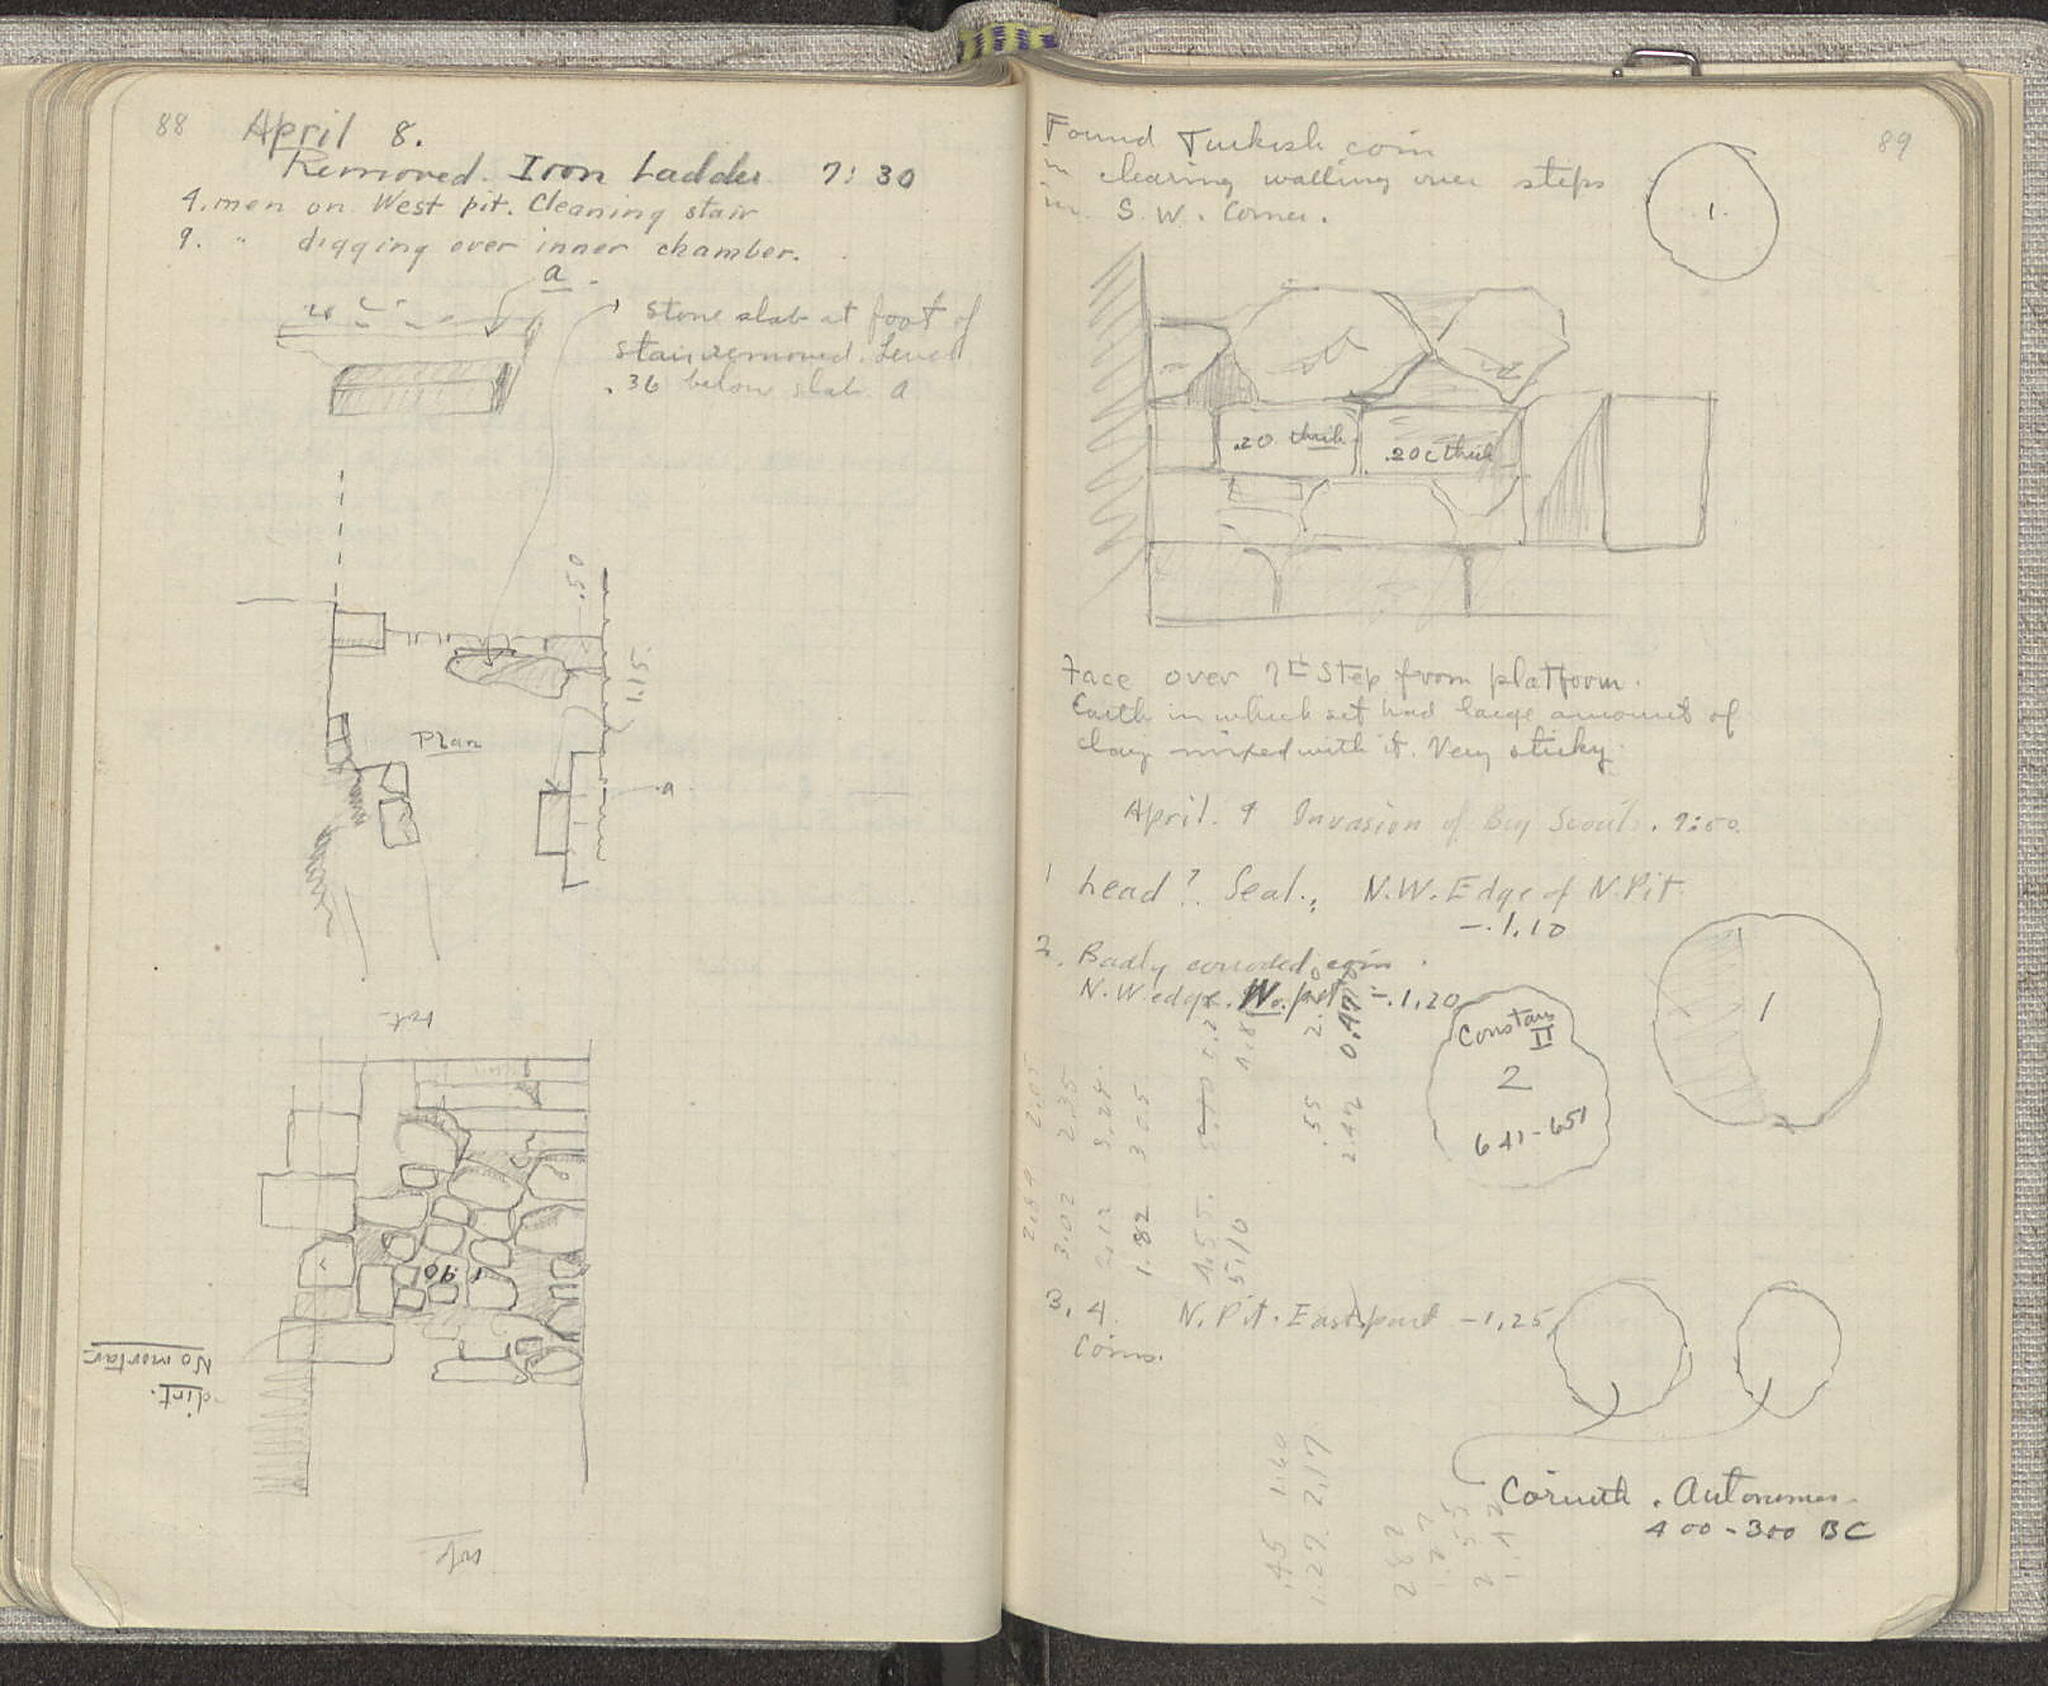 88
April 8.
Removed. Iron Ladder 7:30
4. men on West pit. Cleaning stair
9. " digging over inner chamber.
a
Stone slab at foot of
stair removed. Level
.36 below slab a
.50
1.15
Plan
a
1.90
No mortar
dirt.
89
Found Turkish coin
in clearing walling over steps
in S.W. Corner.
1.
.20 thick
.20c thick
Face over 7th Step from platform.
Earth in which set had large amount of
clay mixed with it. Very sticky.
April. 9 Invasion of Boy Scouts. 9:50.
1 head? Seal., N.W. Edge of N. Pit
-.1.10
2. Badly corroded coin.
N.W. edge. W. pit -.1.20
1
Constans
II
2
641-651
2.35
3.02
3.24
3.05
1.82
.55
2.42
4.55
5.10
3. 4. N. Pit. East part -1.25
Coins.
.45 1.60
1.27 2.17
Corinth. Autonomous
400-300 BC